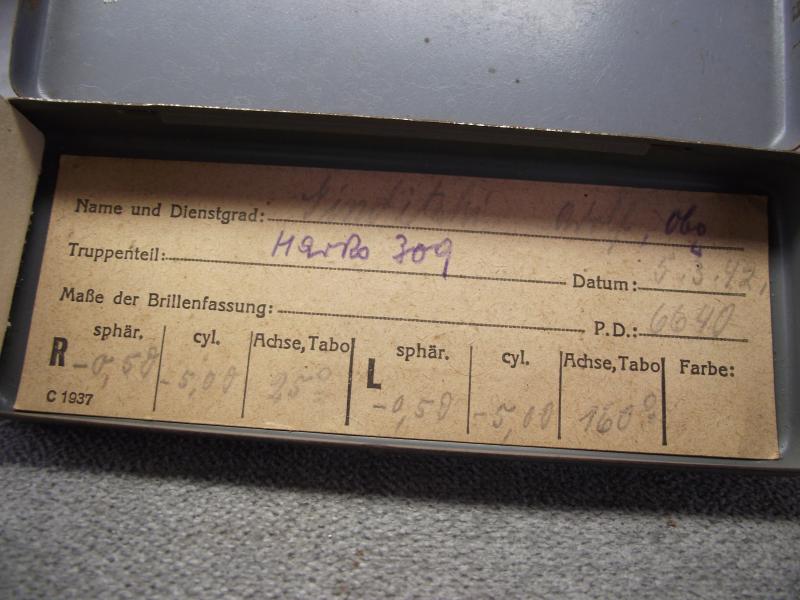 Name und Dienstgrad: Adolf, Obg
Truppenteil: HarKo 309
Datum: 5.3.42.
Maße der Brillenfassung:
P.D.: 6640
R sphär. cyl. Achse, Tabo L sphär. cyl. Achse, Tabo Farbe:
-0,50 -5,00 25° -0,50 -5,00 160°
C 1937